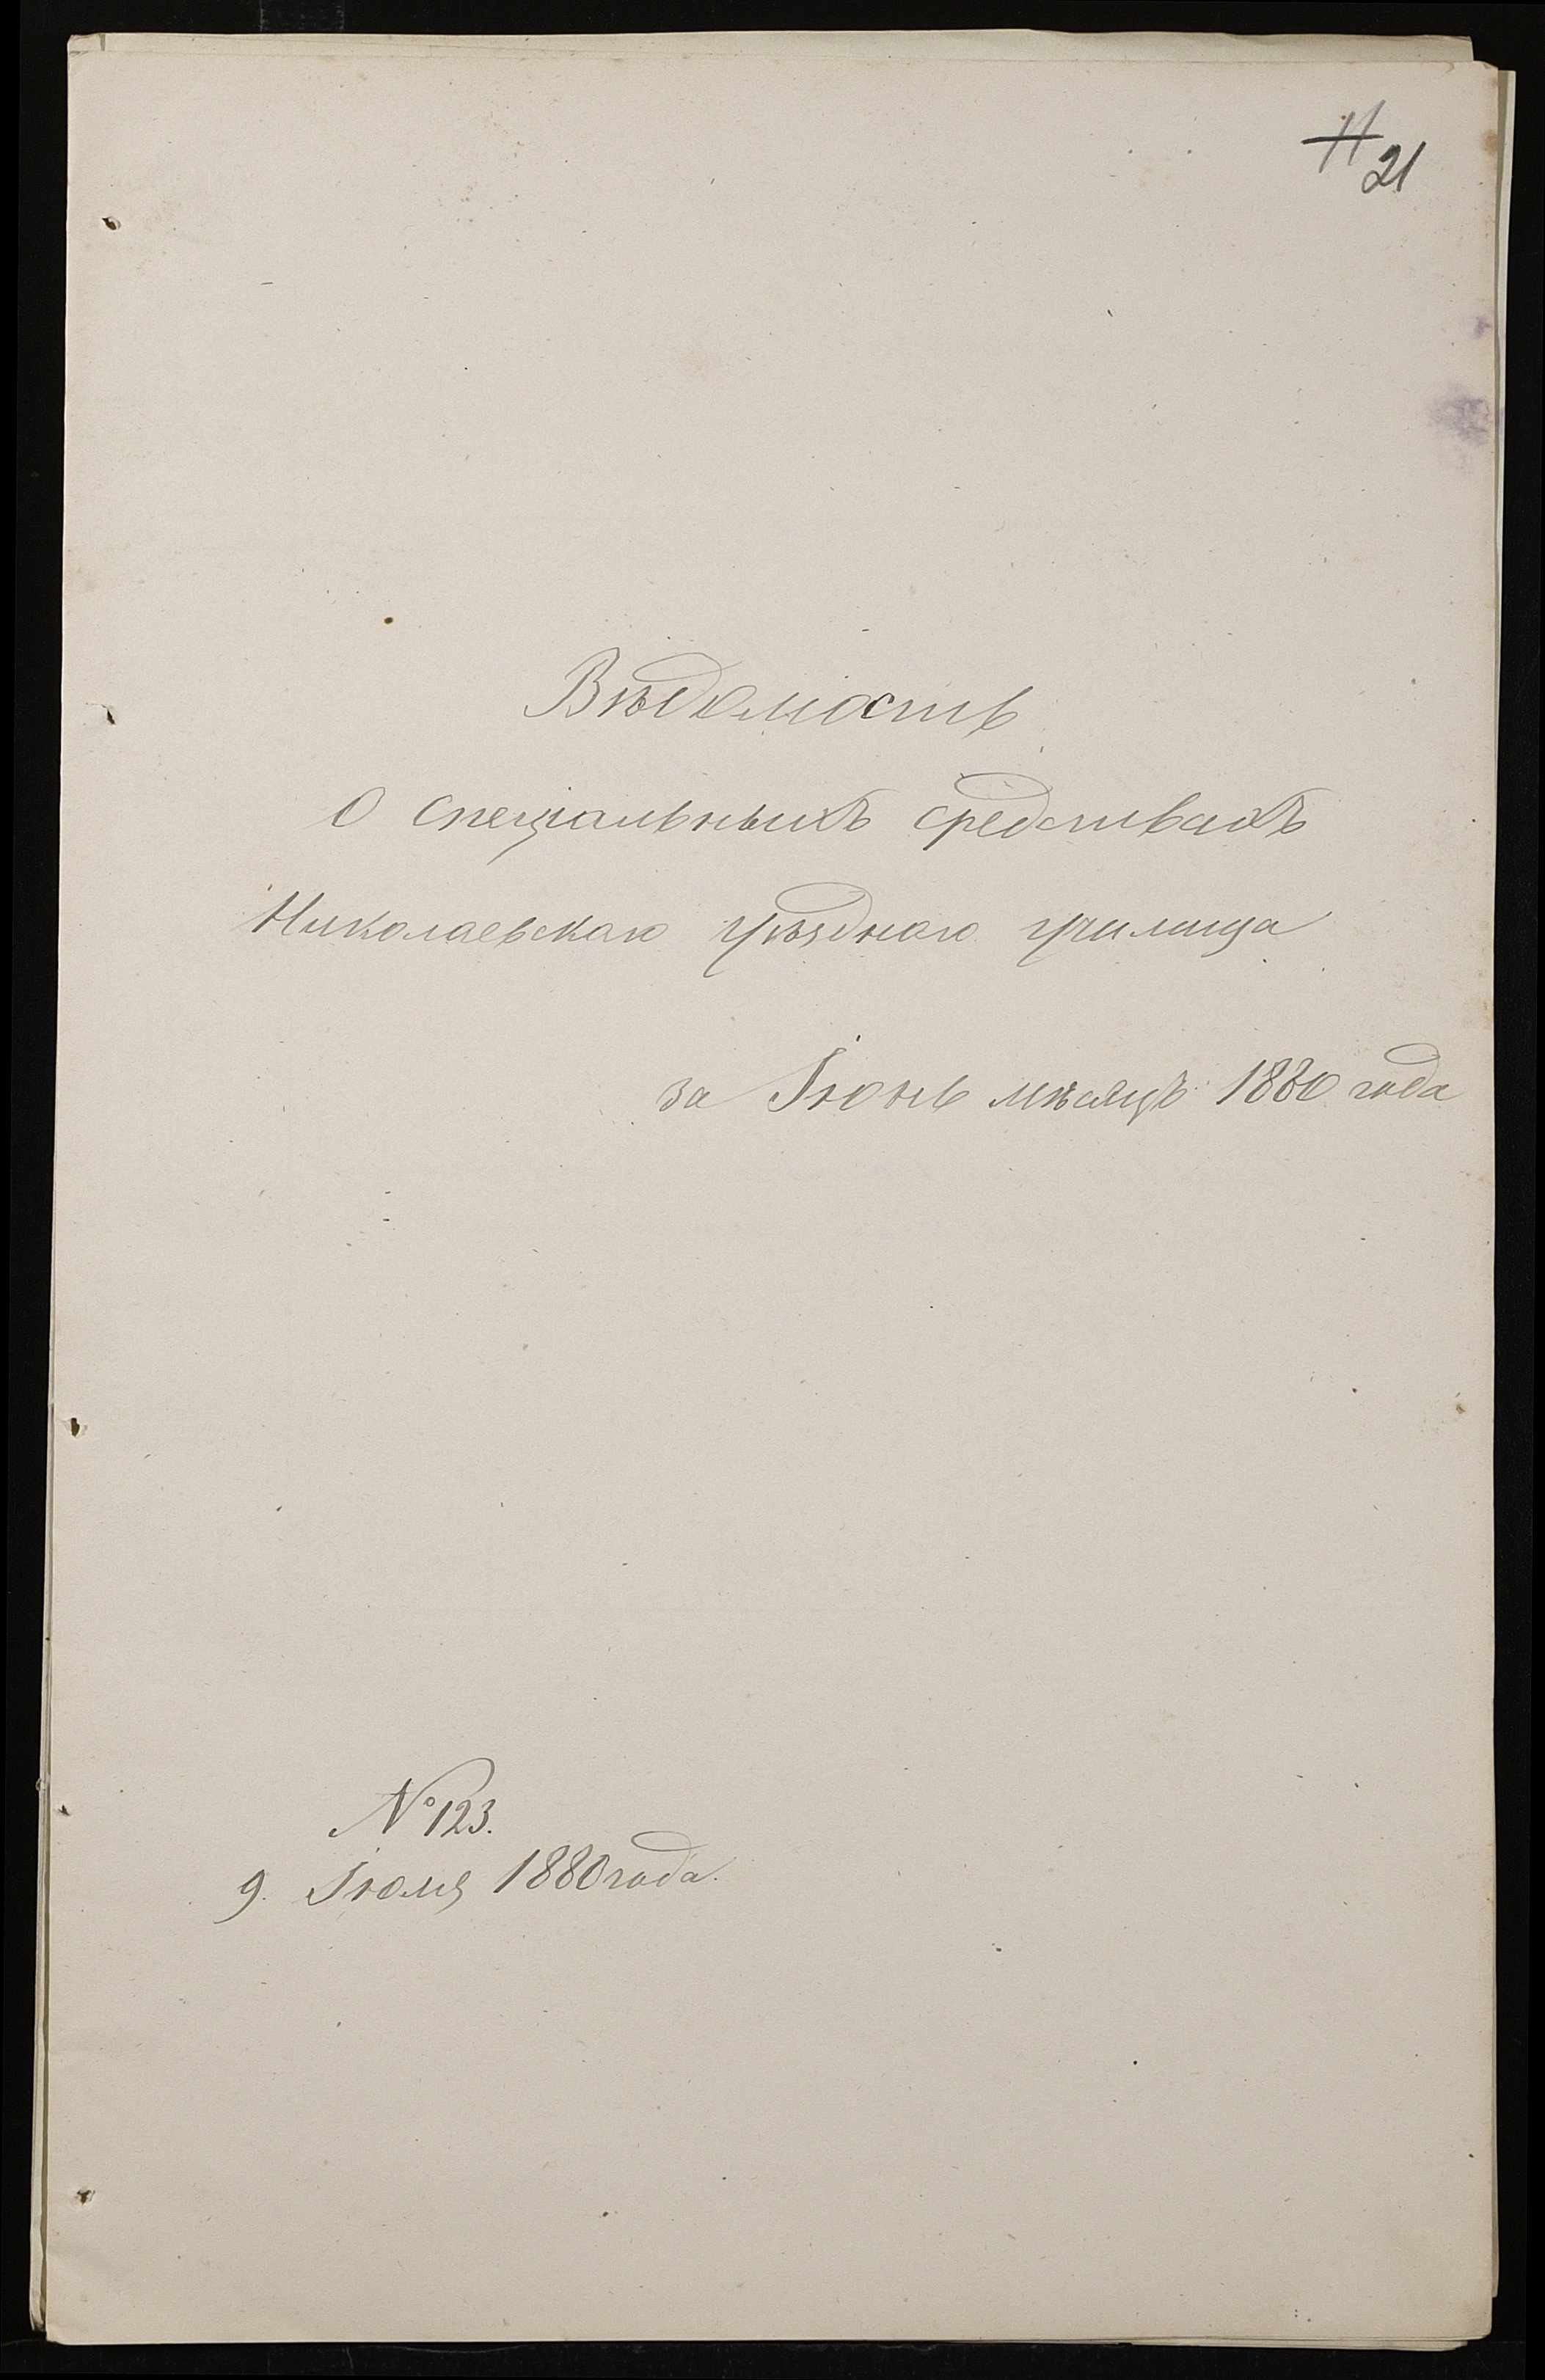 11
21
Вѣдомость
О спеціальныхъ средствахъ
Николаевскаго уѣзднаго училища
за Іюнь мѣсяцъ 1880 года
№ 123.
9. Іюля 1880 года.